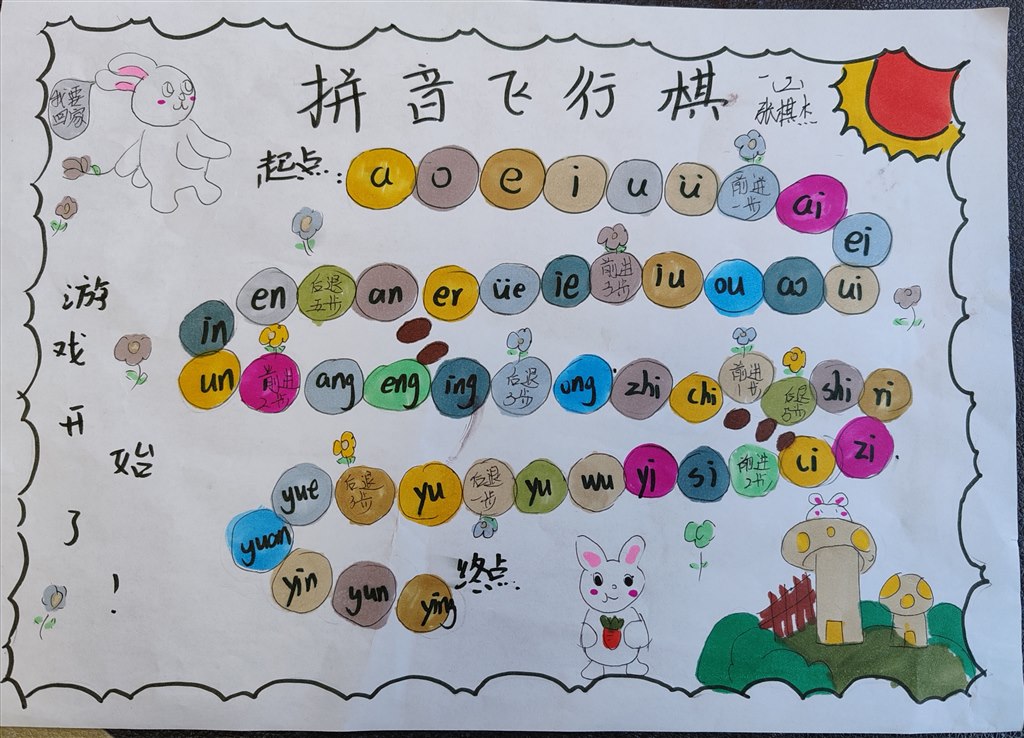 拼音飞行棋
一(2)
张棋杰
我要
回家
起点: a o e i u ü 前进一步 ai
ei
en 后退五步 an er üe ie 前进3步 iu ou ao ui
in
un 前进2步 ang eng ing 后退 ong zhi chi 前进 后退5步 shi ri
yue 后退3步 yu 后退一步 yu wu yi si 前进2步 ci zi
yuan
yin yun ying 终点
游戏开始了!